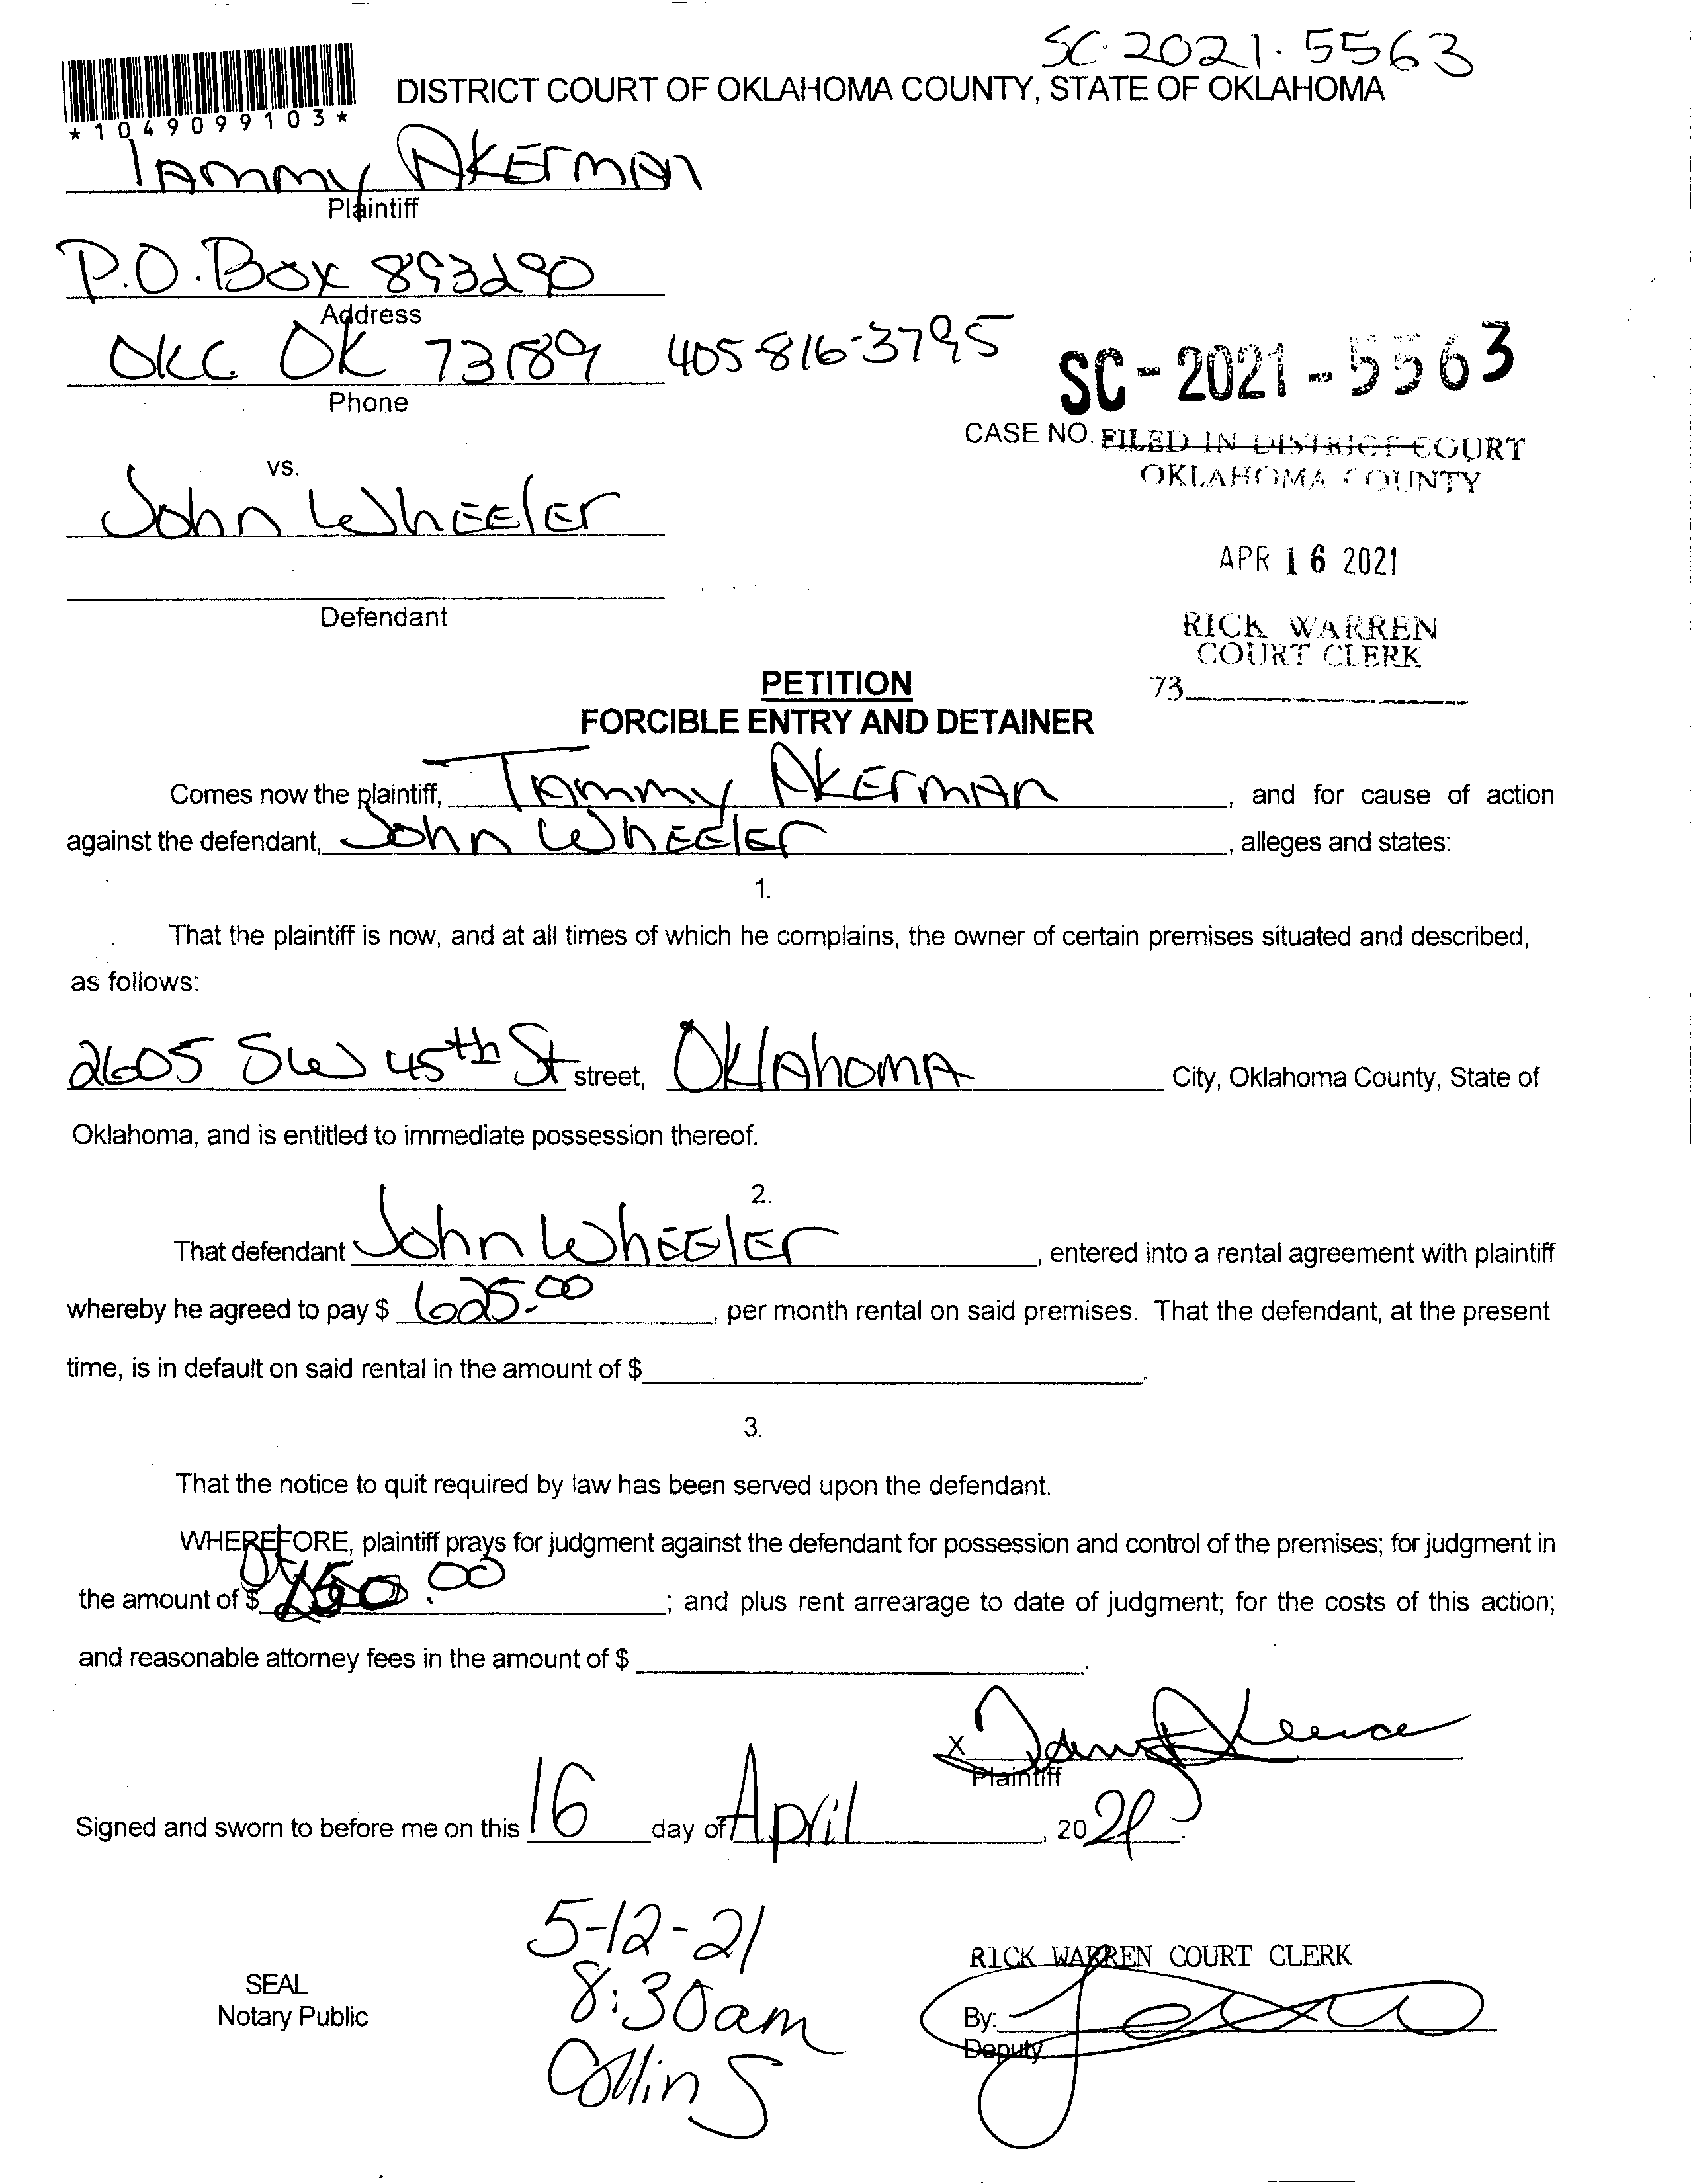 SC-2021-5563
DISTRICT COURT OF OKLAHOMA COUNTY, STATE OF OKLAHOMA
*1049099103*
TAmmy AKErmAn
Plaintiff
P.O. Box 893290
Address
OKC OK 73189 405-816-3795
Phone
SC-2021-5563
CASE NO. FILED IN DISTRICT COURT
OKLAHOMA COUNTY
vs.
John WhEElEr
APR 16 2021
Defendant
RICK WARREN
COURT CLERK
73
PETITION
FORCIBLE ENTRY AND DETAINER
Comes now the plaintiff, TAmmy AKErmAn, and for cause of action
against the defendant, John WhEElEr, alleges and states:
1.
That the plaintiff is now, and at all times of which he complains, the owner of certain premises situated and described,
as follows:
2605 SW 45th St street, OKlAhomA City, Oklahoma County, State of
Oklahoma, and is entitled to immediate possession thereof.
2.
That defendant John WhEElEr, entered into a rental agreement with plaintiff
whereby he agreed to pay $ 625.00, per month rental on said premises. That the defendant, at the present
time, is in default on said rental in the amount of $
3.
That the notice to quit required by law has been served upon the defendant.
WHEREFORE, plaintiff prays for judgment against the defendant for possession and control of the premises; for judgment in
the amount of $ .00; and plus rent arrearage to date of judgment; for the costs of this action;
and reasonable attorney fees in the amount of $
X
Plaintiff
Signed and sworn to before me on this 16 day of April, 2021.
5-12-21
8:30am
Collins
SEAL
Notary Public
RICK WARREN COURT CLERK
By:
Deputy